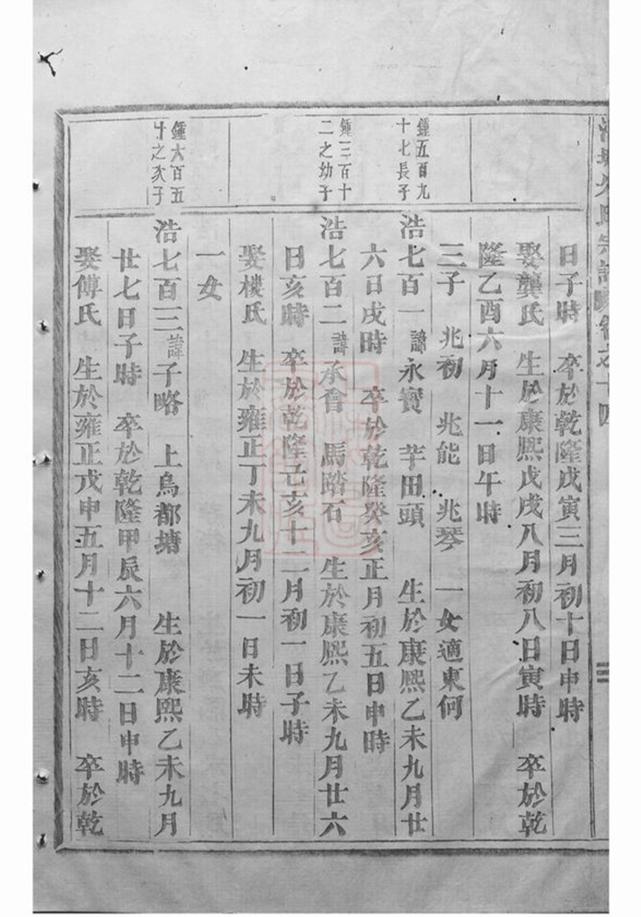 氏宗譜卷之十四
日子時　卒於乾隆戊寅三月初十日申時
娶龔氏　生於康熙戊戌八月初八日寅時　卒於乾
隆乙酉六月十一日午時
三子　兆初　兆能　兆琴　一女適東何
鍾五百九
十七長子
浩七百一　諱永寶　芋田頭　生於康熙乙未九月廿
六日戌時　卒於乾隆癸亥正月初五日申時
鍾三百十
二之幼子
浩七百二　諱永會　馬踏石　生於康熙乙未九月廿六
日亥時　卒於乾隆己亥十二月初一日子時
娶樓氏　生於雍正丁未九月初一日未時
一女
鍾六百五
十之次子
浩七百三　諱子略　上烏都塘　生於康熙乙未九月
廿七日子時　卒於乾隆甲辰六月十二日申時
娶傅氏　生於雍正戊申五月十二日亥時　卒於乾